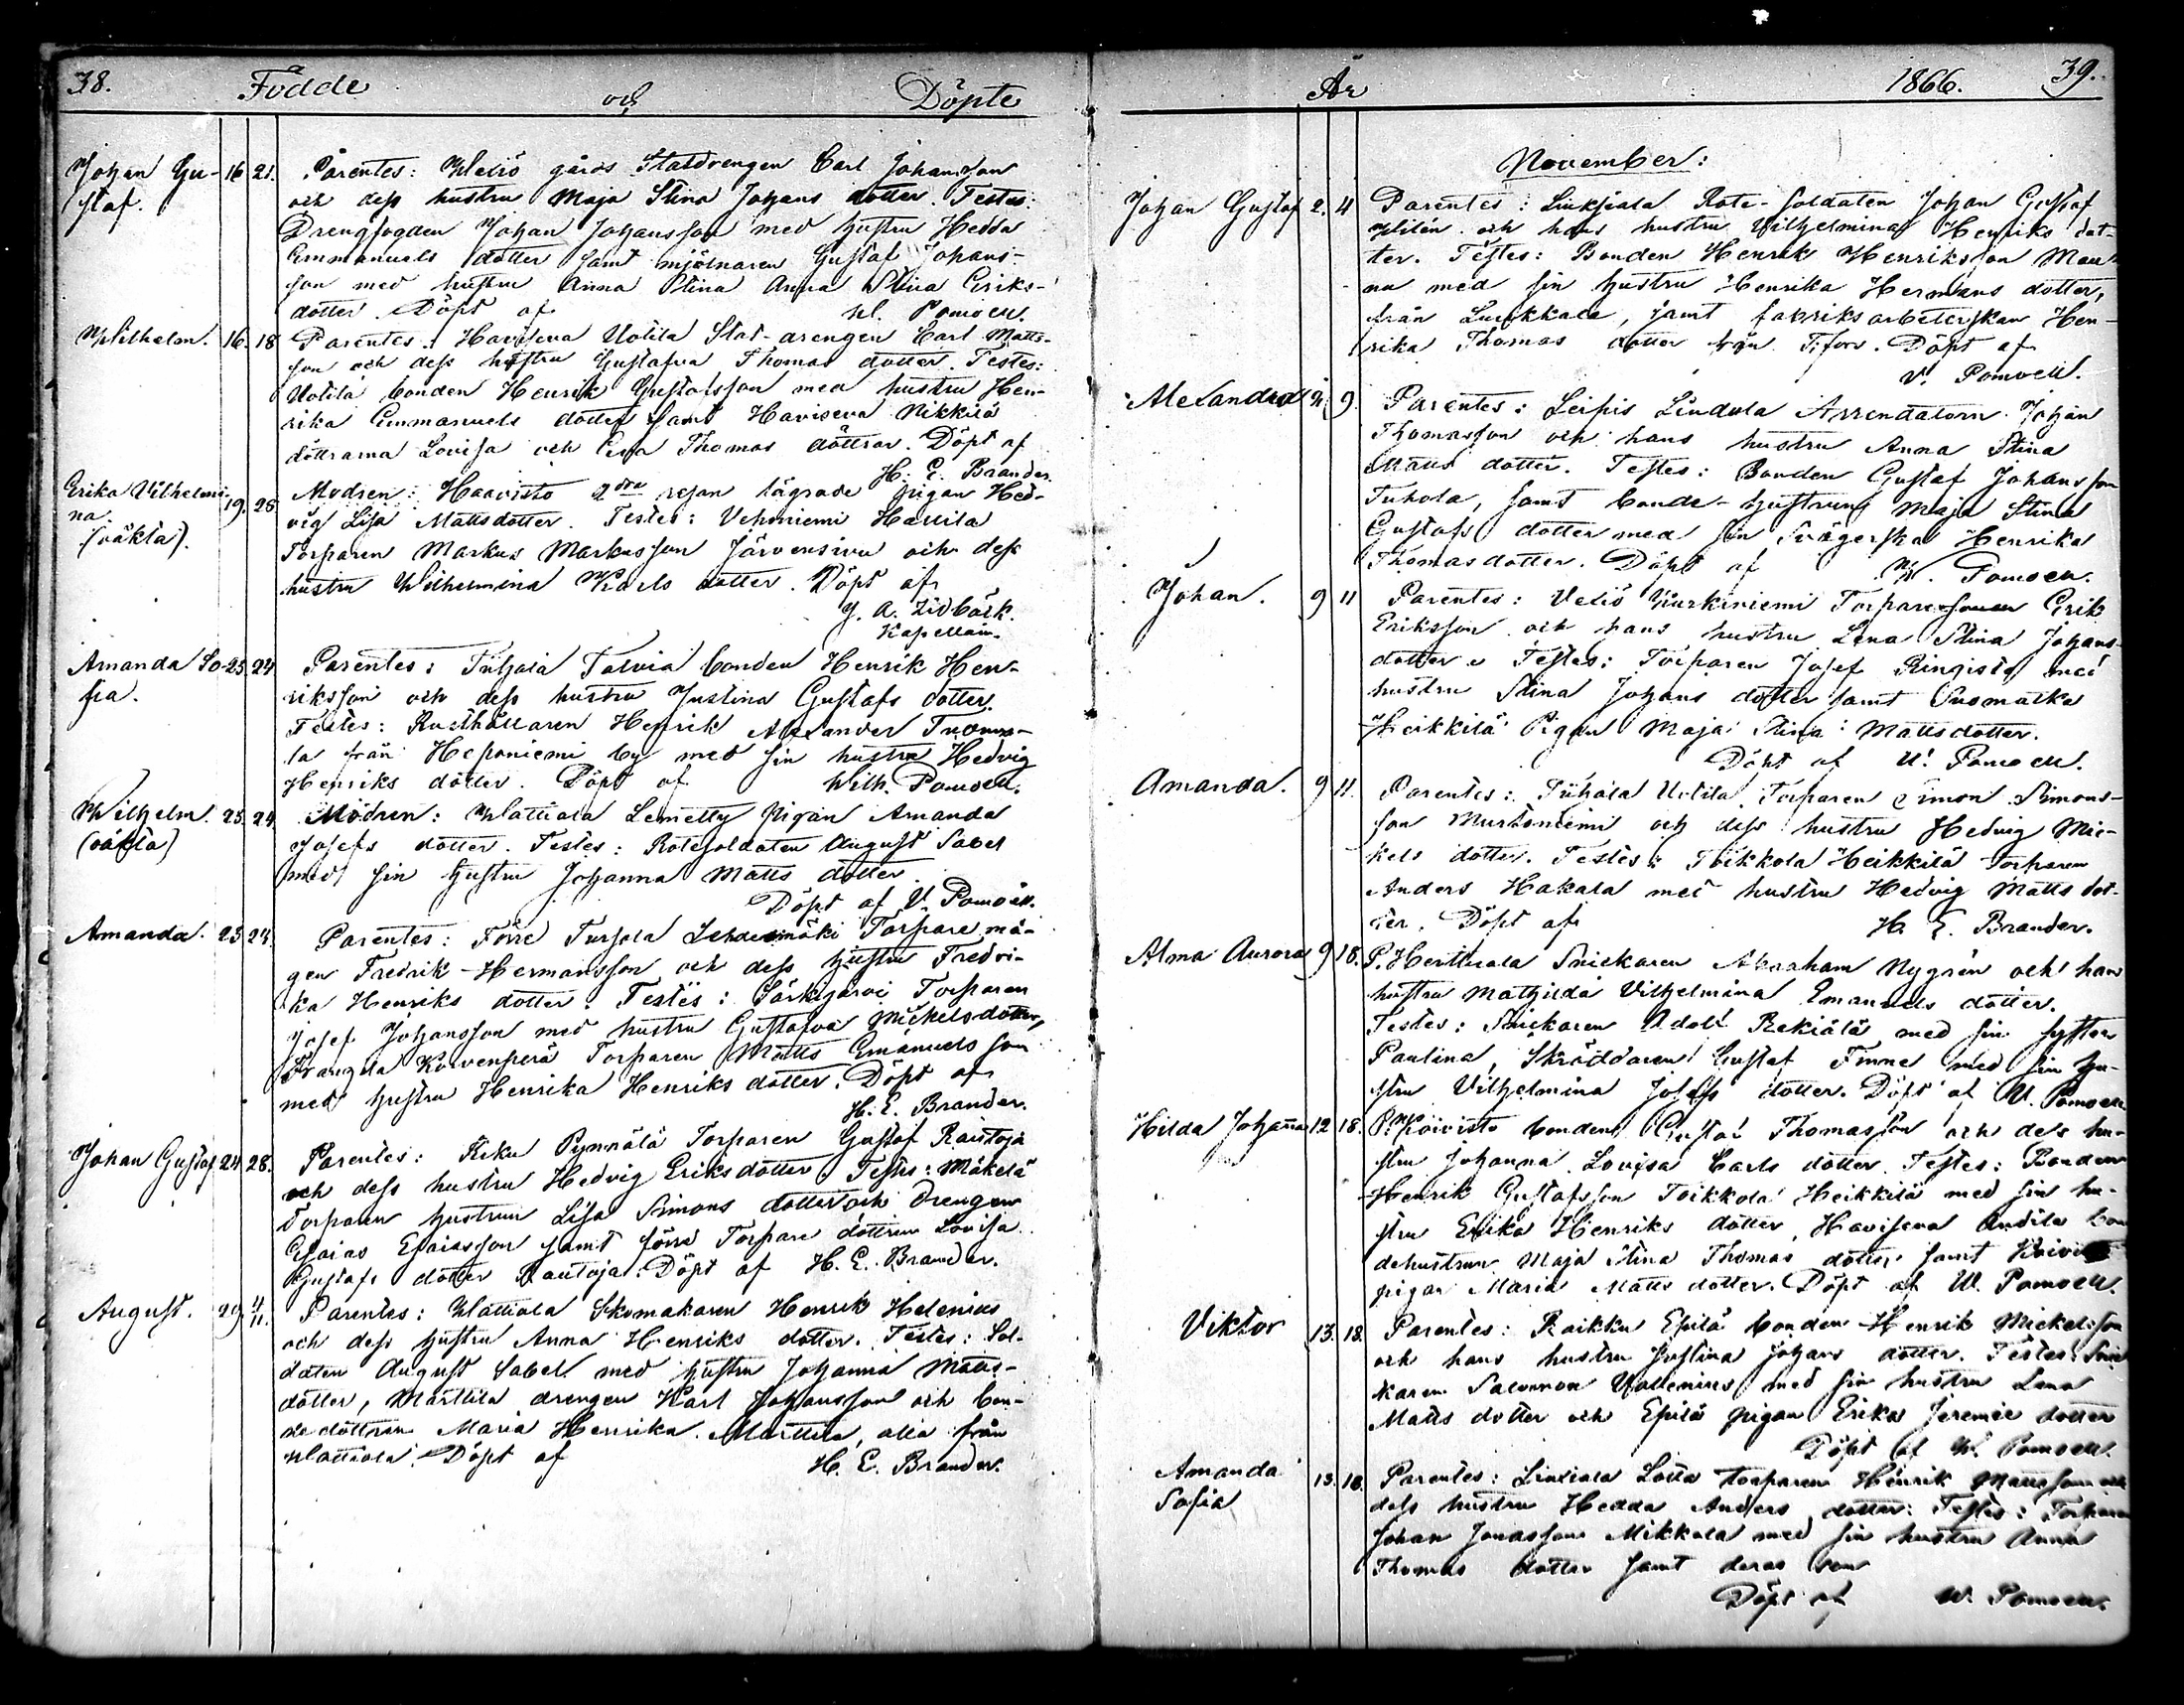 38. Födde och Döpte
Johan Gu- 16 21. Parentes: Weliö gårds Statdrengen Carl Johansson
staf. och dess hustru Maja Stina Johans dotter. Testes:
Drengfogden Johan Johansson med hustru Hedda
Emmanuels dotter samt mjölnaren Gustaf Johans-
son med hustru Anna Stina Anna Stina Eriks-
dotter. Döpt af W. Pomoell.
Wilhelm. 16. 18 Parentes: Haviseva Uotila Stat-drengen Carl Matts-
son och dess hustru Gustafva Thomas dotter. Testes:
Uotila bonden Henrik Gustafsson med hustru Hen-
rika Emmanuels dotter samt Haviseva Nikkilä
döttrarna Lovisa och Eva Thomas döttrar. Döpt af
H. E. Brander.
Erika Vilhelmi- 19. 28 Modren: Haavisto 2dra resan lägrade pigan Hed-
na. vig Lisa Mattsdotter. Testes: Vehoniemi Hallila
(oäkta). Torparen Markus Markusson Järvensivu och dess
hustru Wilhelmina Karls dotter. Döpt af
J. A. Lidbäck.
Kapellan.
Amanda So- 23. 24 Parentes: Tuhala Talvia bonden Henrik Hen-
fia. riksson och dess hustru Justina Gustafs dotter.
Testes: Rusthållaren Henrik Alexander Tuomo-
la från Heponiemi by med sin hustru Hedvig
Henriks dotter. Döpt af Wilh. Pomoell.
Wilhelm. 23. 24 Modren: Wattiala Lemetty pigan Amanda
(oäkta) Josefs dotter. Testes: Rotesoldaten August Sabel
med sin hustru Johanna Matts dotter.
Döpt af V. Pomoell.
Amanda. 23. 24. Parentes: Förre Tursola Lehdesmäki Torpare må-
gen Fredrik Hermansson och dess hustru Fredri-
ka Henriks dotter. Testes: Särkijärvi Torparen
Josef Johansson med hustru Gustafva Mickelsdotter,
Frangila Koivenperä Torparen Matts Emanuelsson
med hustru Henrika Henriks dotter. Döpt af
H. E. Brander.
Johan Gustaf 24. 28. Parentes: Riku Pynnälä Torparen Gustaf Rautoja
och dess hustru Hedvig Eriksdotter Testes: Mäkelä
Torparen hustrun Lisa Simons dotter och Drengen
Esaias Esaiasson samt förre Torpare dottren Lovisa
Gustafs dotter Rautoja. Döpt af H. E. Brander.
August. 29. 4/11. Parentes: Wattiala Skomakaren Henrik Helenius
och dess hustru Anna Henriks dotter. Testes: Sol-
daten August Sabel med hustru Johanna Matts-
dotter, Marttila drengen Karl Johansson och bon-
de dottren Maria Henrika Marttila, alla från
Wattiala. Döpt af H. E. Brander.
År 1866. 39.
November:
Johan Gustaf 2. 4 Parentes: Liuksiala Rote-Soldaten Johan Gustaf
och hans hustru Vilhelmina Henriks dot-
ter. Testes: Bonden Henrik Henriksson Man-
nu med sin hustru Henrika Hermans dotter,
från Luukkala, samt fabriksarbeterskan Hen-
rika Thomas dotter från T:fors. Döpt af
V. Pomoell.
Alexandra 9. Parentes: Leipis Lindula Arrendatorn Johan
Thomasson och hans hustru Anna Stina
Matts dotter. Testes: Bonden Gustaf Johansson
Tuhola, samt bonde-hustrun Maja Stina
Gustafs dotter med sin Svägerska Henrika
Thomasdotter. Döpt af W. Pomoell.
Johan. 9 11 Parentes: Veliö Kurkiniemi Torparesonen Erik
Eriksson och hans hustru Lena Stina Johans-
dotter. Testes: Torparen Josef Ringisto med
hustru Stina Johans dotter samt Suomatka
Heikkilä Pigan Maja Stina Mattsdotter.
Döpt af W. Pomoell.
Amanda. 9 11. Parentes: Tuhala Uotila Torparen Simon Simons-
son Mustoniemi och dess hustru Hedvig Mic-
kels dotter. Testes: Toikkola Heikkilä Torparen
Anders Hakala med hustru Hedvig Matts dot-
ter. Döpt af H. E. Brander.
Alma Aurora 9 18. P. Herttuala Snickaren Abraham Nygrén och hans
hustru Mathilda Vilhelmina Emanuels dotter.
Testes: Snickaren Adolf Rekiälä med sin syster
Paulina, Skräddaren Gustaf Finne med sin hu-
stru Vilhelmina Josefs dotter. Döpt af W. Pomoell.
Hilda Johanna 12 18. P. Koivisto bonden Gustaf Thomasson och dess hu-
stru Johanna Lovisa Carls dotter. Testes: Bonden
Henrik Gustafsson Toikkola Heikkilä med sin hu-
stru Erika Henriks dotter, Haviseva Anttila bon
dehustrun Maja Stina Thomas dotter samt Koivisto
pigan Maria Matts dotter. Döpt af W. Pomoell.
Viktor 13. 18. Parentes: Raikku Epilä bonden Henrik Mickelsson
och hans hustru Justina Johans dotter. Testes: Snic
karen Salomon Wallenius med sin hustru Lena
Matts dotter och Epilä pigan Erika Jeremie dotter
Döpt af W. Pomoell.
Amanda 13. 18. Parentes: Liuksiala Lotta torparen Henrik Mattsson och
Sofia dess hustru Hedda Anders dotter: Testes: Torparen
Johan Jonasson Mikkola med sin hustru Anna
Thomas dotter samt deras son
Döpt af W. Pomoell.